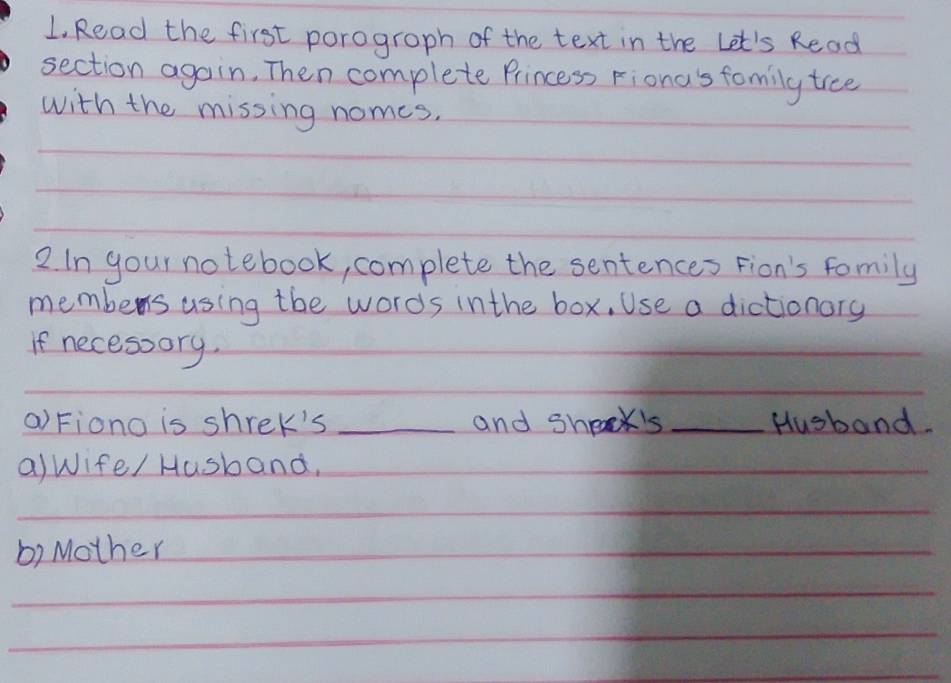 1. Read the first porogroph of the text in the Let's Read
section again. Then complete Princess Fiona's fomily tree
with the missing nomes.
2. In your notebook, complete the sentences Fion's Fomily
members using the words in the box. Use a dictionory
if necessory.
a) Fiono is shrek's ______ and Shreck's ______ Husband.
a) Wife/Husband.
b) Mother